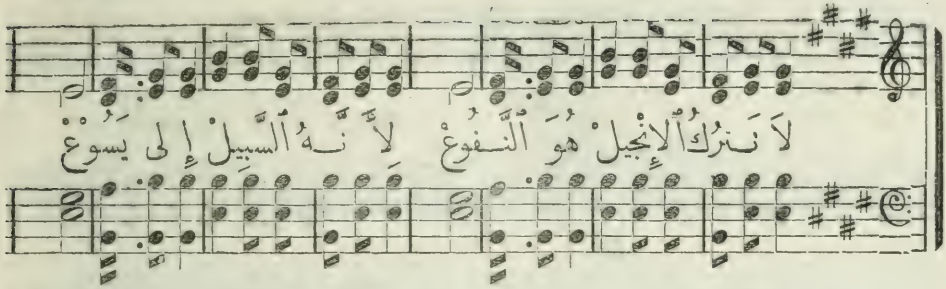 لَا نَتْرُكُ ٱلْإِنْجِيلْ هُوَ ٱلنَّفُوعْ لِأَنَّهُ ٱلسَّبِيلْ إِلَى يَسُوعْ